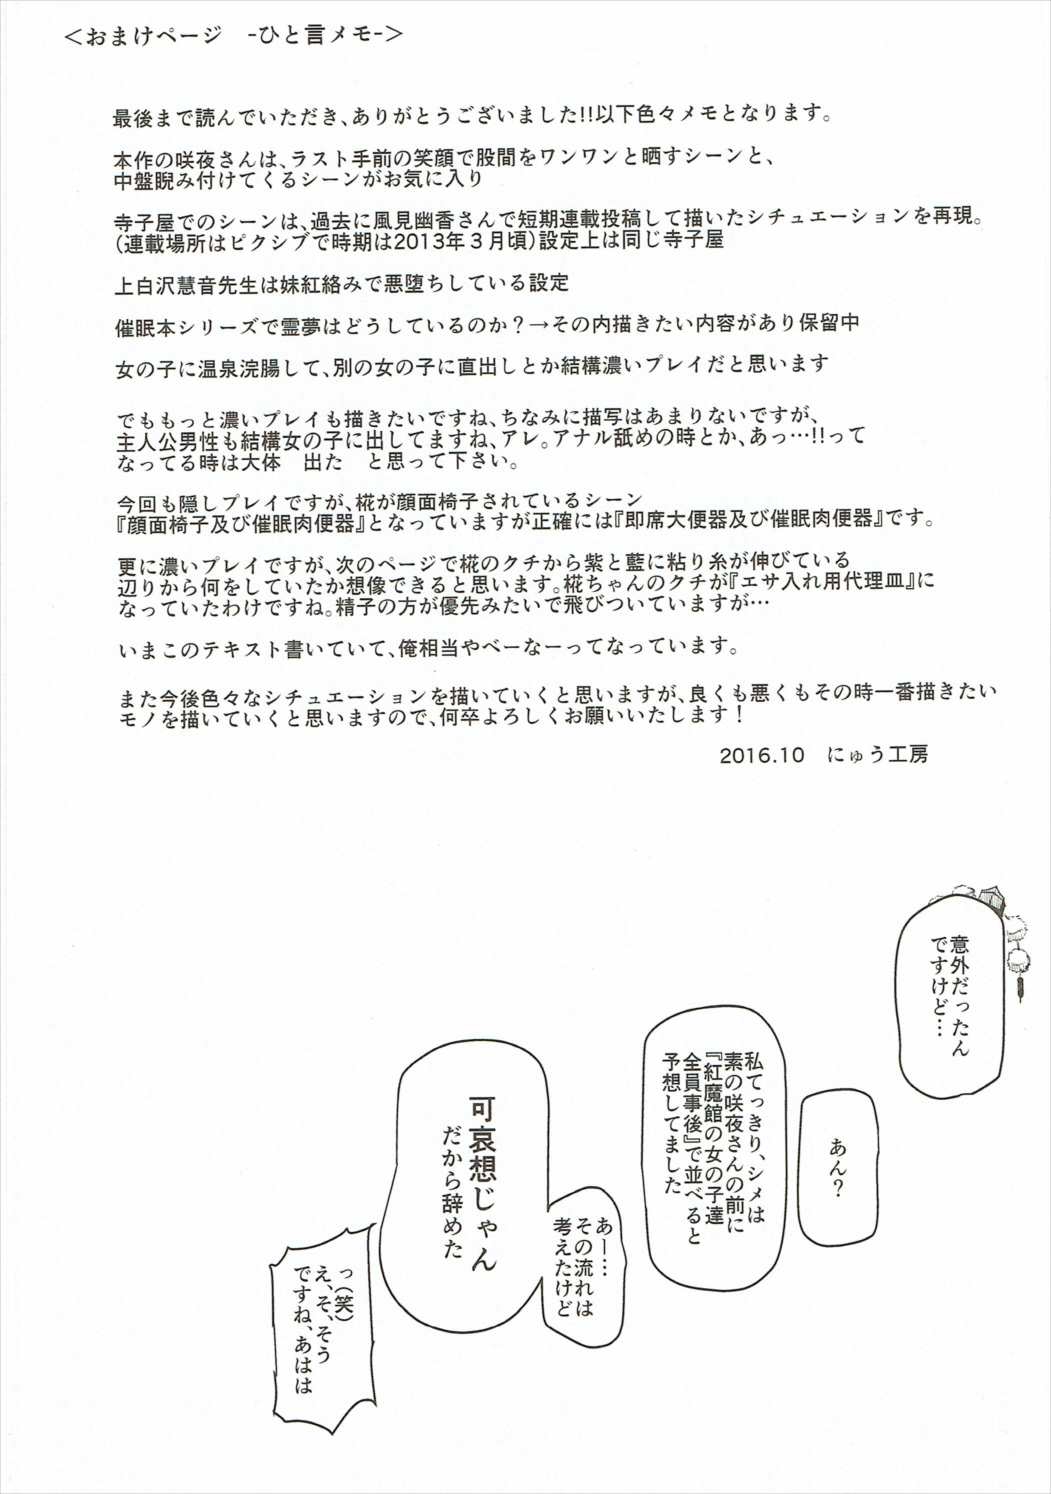 ＜おまけページ　-ひと言メモ-＞
最後まで読んでいただき、ありがとうございました!!以下色々メモとなります。
本作の咲夜さんは、ラスト手前の笑顔で股間をワンワンと晒すシーンと、
中盤睨み付けてくるシーンがお気に入り
寺子屋でのシーンは、過去に風見幽香さんで短期連載投稿して描いたシチュエーションを再現。
（連載場所はピクシブで時期は2013年３月頃）設定上は同じ寺子屋
上白沢慧音先生は妹紅絡みで悪堕ちしている設定
催眠本シリーズで霊夢はどうしているのか？→その内描きたい内容があり保留中
女の子に温泉浣腸して、別の女の子に直出しとか結構濃いプレイだと思います
でももっと濃いプレイも描きたいですね、ちなみに描写はあまりないですが、
主人公男性も結構女の子に出してますね、アレ。アナル舐めの時とか、あっ…!!って
なってる時は大体　出た　と思って下さい。
今回も隠しプレイですが、椛が顔面椅子されているシーン
『顔面椅子及び催眠肉便器』となっていますが正確には『即席大便器及び催眠肉便器』です。
更に濃いプレイですが、次のページで椛のクチから紫と藍に粘り糸が伸びている
辺りから何をしていたか想像できると思います。椛ちゃんのクチが『エサ入れ用代理皿』に
なっていたわけですね。精子の方が優先みたいで飛びついていますが…
いまこのテキスト書いていて、俺相当やべーなーってなっています。
また今後色々なシチュエーションを描いていくと思いますが、良くも悪くもその時一番描きたい
モノを描いていくと思いますので、何卒よろしくお願いいたします！
2016.10　にゅう工房
意外だったん
ですけど…
あん？
私てっきり、シメは
素の咲夜さんの前に
『紅魔館の女の子達
全員事後』で並べると
予想してました
あー…
その流れは
考えたけど
可哀想じゃん
だから辞めた
っ（笑）
え、そ、そう
ですね、あはは